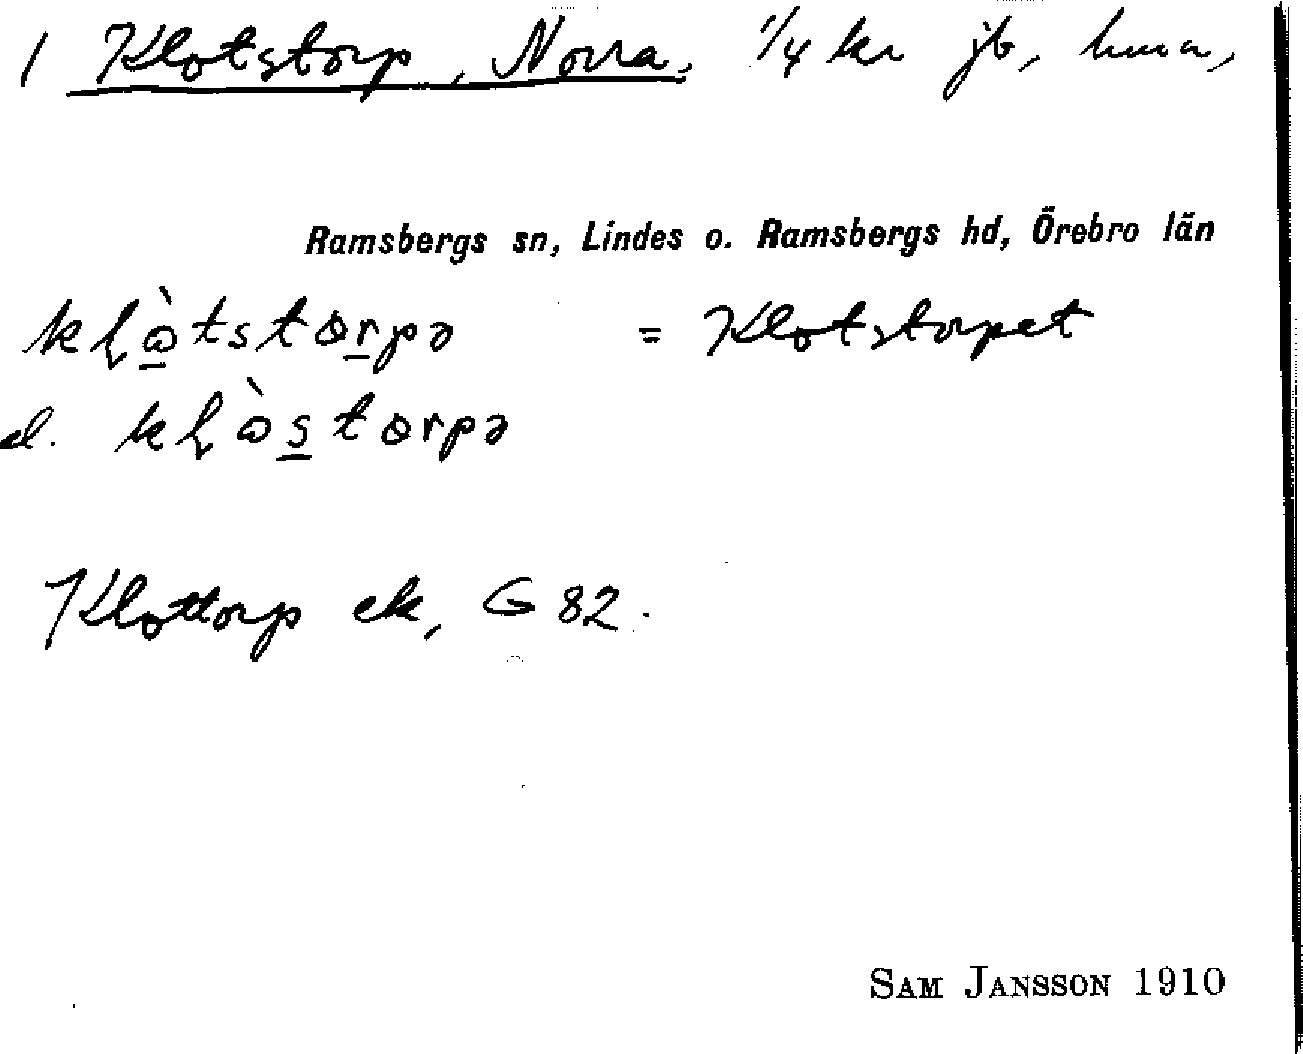 1 Klotstorp, Norra, 1/4 kr jb, hmn,
Ramsbergs sn, Lindes o. Ramsbergs hd, Örebro län
kɭɷ̀tstɷrpə = Klotstorpet
el. kɭɷ̀stɷrpə
Klottorp ek, G 82.
SAM JANSSON 1910